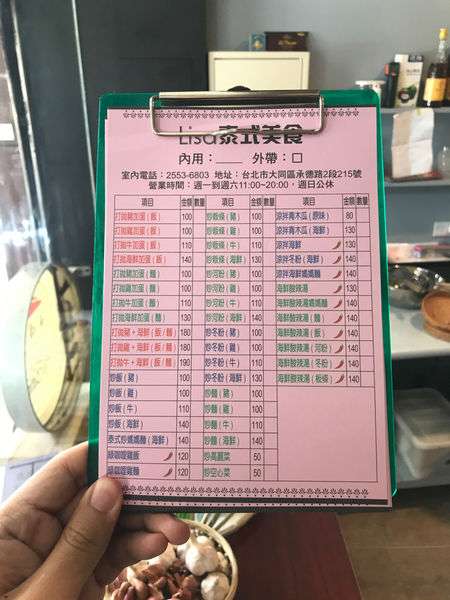 Lisa泰式美食
內用：____ 外帶：□
室內電話：2553-6803 地址：台北市大同區承德路2段215號
營業時間：週一到週六11:00~20:00，週日公休
項目 金額 數量 項目 金額 數量 項目 金額 數量
打拋豬加蛋(飯) 100 炒粄條(豬) 100 涼拌青木瓜(原味) 80
打拋雞加蛋(飯) 100 炒粄條(雞) 100 涼拌青木瓜(海鮮) 130
打拋牛加蛋(飯) 110 炒粄條(牛) 110 涼拌海鮮 130
打拋海鮮加蛋(飯) 130 炒粄條(海鮮) 130 涼拌冬粉(海鮮) 140
打拋豬加蛋(麵) 100 炒河粉(豬) 100 涼拌海鮮媽媽麵 140
打拋雞加蛋(麵) 100 炒河粉(雞) 100 海鮮酸辣湯 130
打拋牛加蛋(麵) 110 炒河粉(牛) 110 海鮮酸辣湯媽媽麵 140
打拋海鮮加蛋(麵) 130 炒河粉(海鮮) 130 海鮮酸辣湯(麵) 140
打拋豬+海鮮(飯/麵) 180 炒冬粉(豬) 100 海鮮酸辣湯(飯) 140
打拋雞+海鮮(飯/麵) 180 炒冬粉(雞) 100 海鮮酸辣湯(河粉) 140
打拋牛+海鮮(飯/麵) 190 炒冬粉(牛) 110 海鮮酸辣湯(冬粉) 140
炒飯(豬) 100 炒冬粉(海鮮) 130 海鮮酸辣湯(粄條) 140
炒飯(雞) 100 炒麵(豬) 100
炒飯(牛) 110 炒麵(雞) 100
炒飯(海鮮) 140 炒麵(牛) 110
泰式炒媽媽麵(海鮮) 140 炒麵(海鮮) 140
綠咖哩雞飯 120 炒高麗菜 50
綠咖哩雞麵 120 炒空心菜 50